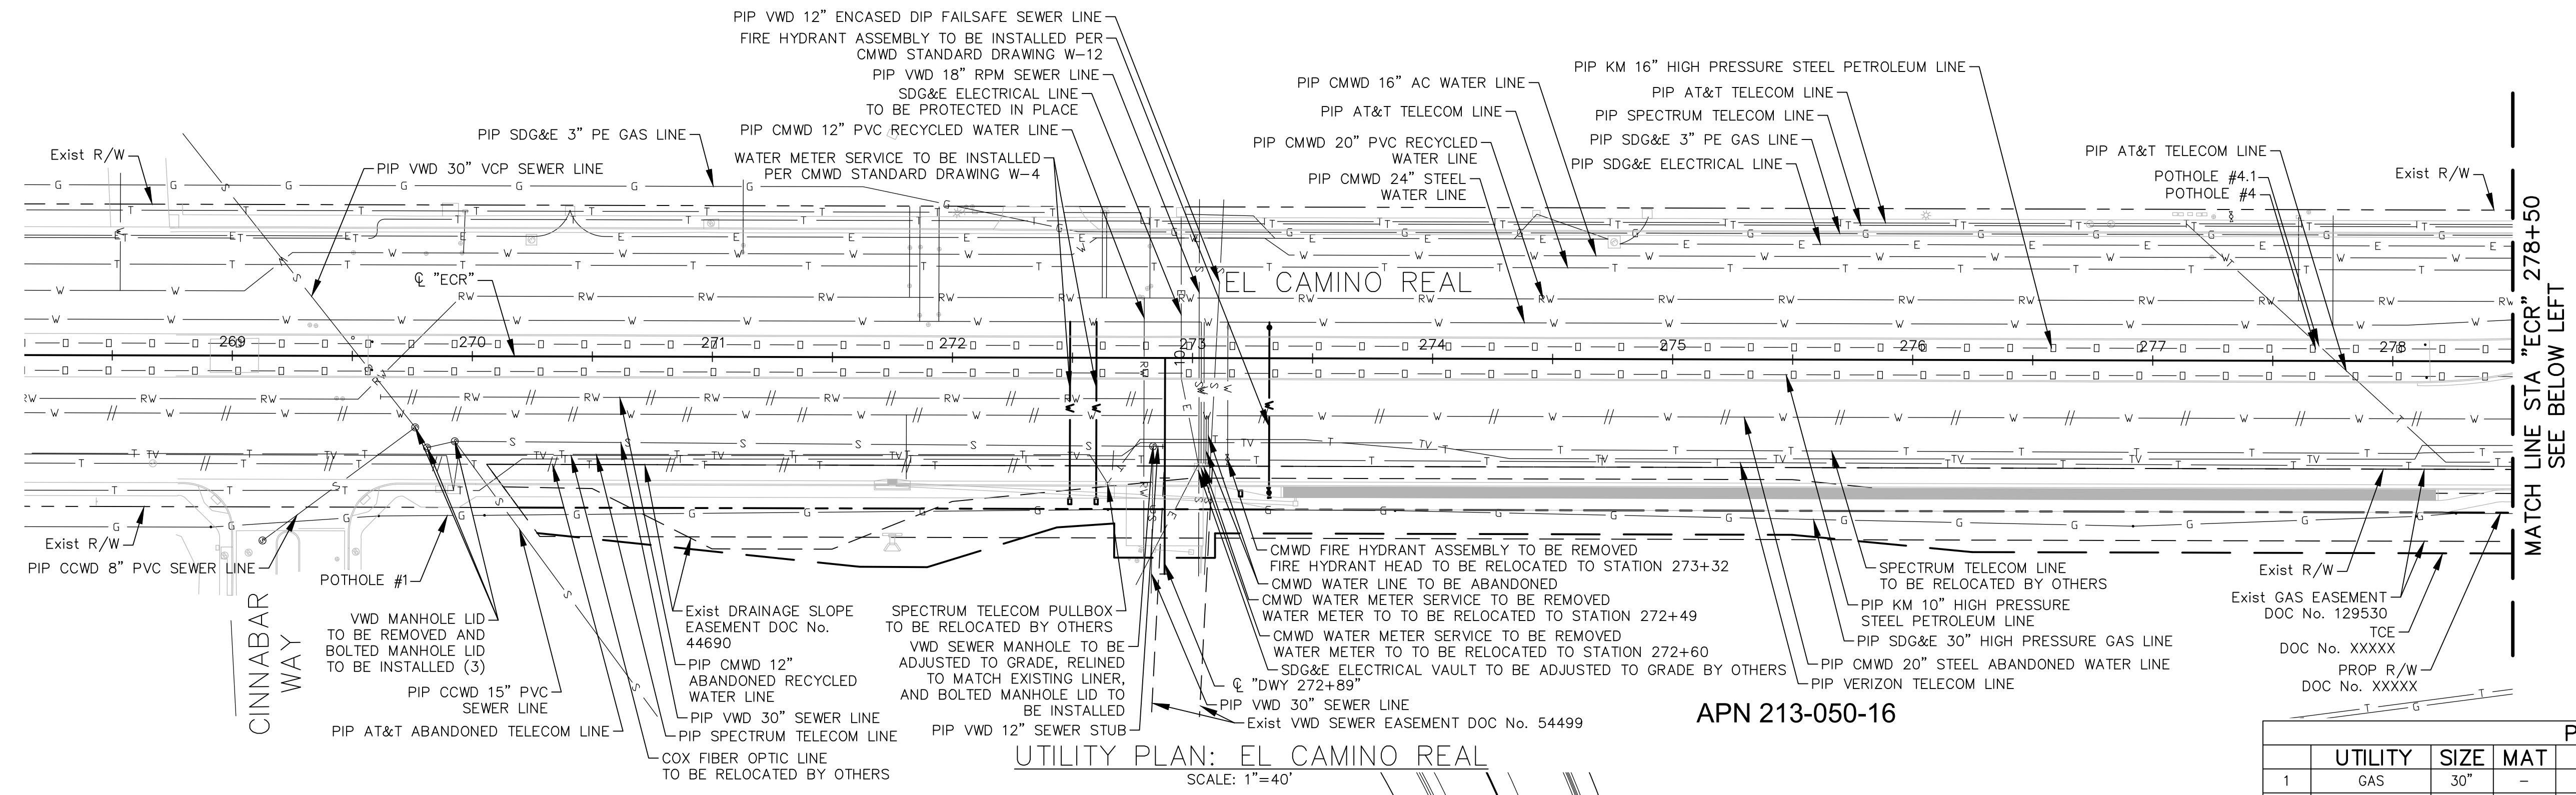 PIP VWD 12" ENCASED DIP FAILSAFE SEWER LINE
FIRE HYDRANT ASSEMBLY TO BE INSTALLED PER
CMWD STANDARD DRAWING W-12
PIP VWD 18" RPM SEWER LINE
SDG&E ELECTRICAL LINE
TO BE PROTECTED IN PLACE
PIP SDG&E 3" PE GAS LINE
PIP CMWD 12" PVC RECYCLED WATER LINE
WATER METER SERVICE TO BE INSTALLED
PER CMWD STANDARD DRAWING W-4
Exist R/W
PIP VWD 30" VCP SEWER LINE
PIP CMWD 16" AC WATER LINE
PIP AT&T TELECOM LINE
PIP CMWD 20" PVC RECYCLED
WATER LINE
PIP CMWD 24" STEEL
WATER LINE
PIP KM 16" HIGH PRESSURE STEEL PETROLEUM LINE
PIP AT&T TELECOM LINE
PIP SPECTRUM TELECOM LINE
PIP SDG&E 3" PE GAS LINE
PIP SDG&E ELECTRICAL LINE
PIP AT&T TELECOM LINE
POTHOLE #4.1
POTHOLE #4
Exist R/W
℄ "ECR"
EL CAMINO REAL
269 270 271 272 273 274 275 276 277 278
MATCH LINE STA "ECR" 278+50
SEE BELOW LEFT
Exist R/W
PIP CCWD 8" PVC SEWER LINE
CINNABAR
WAY
POTHOLE #1
VWD MANHOLE LID
TO BE REMOVED AND
BOLTED MANHOLE LID
TO BE INSTALLED (3)
PIP CCWD 15" PVC
SEWER LINE
PIP AT&T ABANDONED TELECOM LINE
Exist DRAINAGE SLOPE
EASEMENT DOC No.
44690
PIP CMWD 12"
ABANDONED RECYCLED
WATER LINE
PIP VWD 30" SEWER LINE
PIP SPECTRUM TELECOM LINE
COX FIBER OPTIC LINE
TO BE RELOCATED BY OTHERS
SPECTRUM TELECOM PULLBOX
TO BE RELOCATED BY OTHERS
VWD SEWER MANHOLE TO BE
ADJUSTED TO GRADE, RELINED
TO MATCH EXISTING LINER,
AND BOLTED MANHOLE LID TO
BE INSTALLED
PIP VWD 12" SEWER STUB
CMWD FIRE HYDRANT ASSEMBLY TO BE REMOVED
FIRE HYDRANT HEAD TO BE RELOCATED TO STATION 273+32
CMWD WATER LINE TO BE ABANDONED
CMWD WATER METER SERVICE TO BE REMOVED
WATER METER TO TO BE RELOCATED TO STATION 272+49
CMWD WATER METER SERVICE TO BE REMOVED
WATER METER TO TO BE RELOCATED TO STATION 272+60
SDG&E ELECTRICAL VAULT TO BE ADJUSTED TO GRADE BY OTHERS
℄ "DWY 272+89"
PIP VWD 30" SEWER LINE
Exist VWD SEWER EASEMENT DOC No. 54499
SPECTRUM TELECOM LINE
TO BE RELOCATED BY OTHERS
PIP KM 10" HIGH PRESSURE
STEEL PETROLEUM LINE
PIP SDG&E 30" HIGH PRESSURE GAS LINE
PIP CMWD 20" STEEL ABANDONED WATER LINE
PIP VERIZON TELECOM LINE
Exist R/W
Exist GAS EASEMENT
DOC No. 129530
TCE
DOC No. XXXXX
PROP R/W
DOC No. XXXXX
APN 213-050-16
UTILITY PLAN: EL CAMINO REAL
SCALE: 1"=40'
P
UTILITY SIZE MAT
1 GAS 30" -